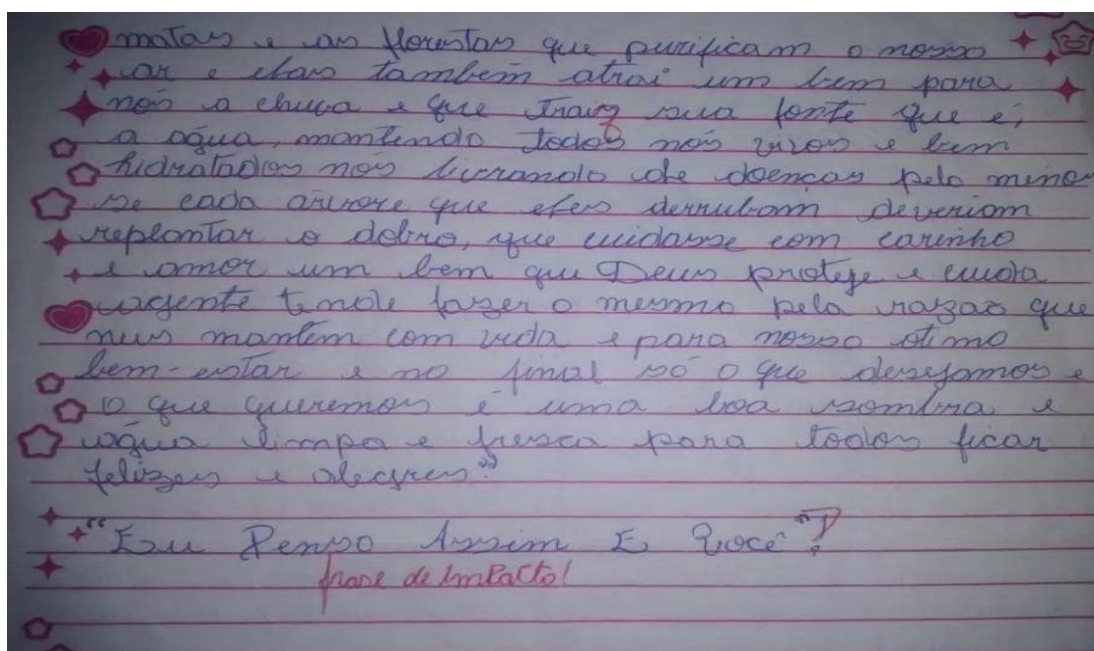 matas e as florestas que purificam o nosso
ar e elas também atrai um bem para
nós a chuva e que traiz sua fonte que é,
a água, mantendo todos nós vivos e bem
hidratados nós livrando de doenças pelo menos
se cada árvore que eles derrubam deveriam
replantar o dobro, que cuidasse com carinho
e amor um bem que Deus proteje e cuida
agente temde fazer o mesmo pela razao que
neus mantem com vida e para nosso otimo
bem-estar e no final só o que desejamos e
o que queremos é uma boa sombra e
água limpa e fresca para todos ficar
felizes e alegres."
"Eu Penso Assim E Você"?
frase de ImPacto!